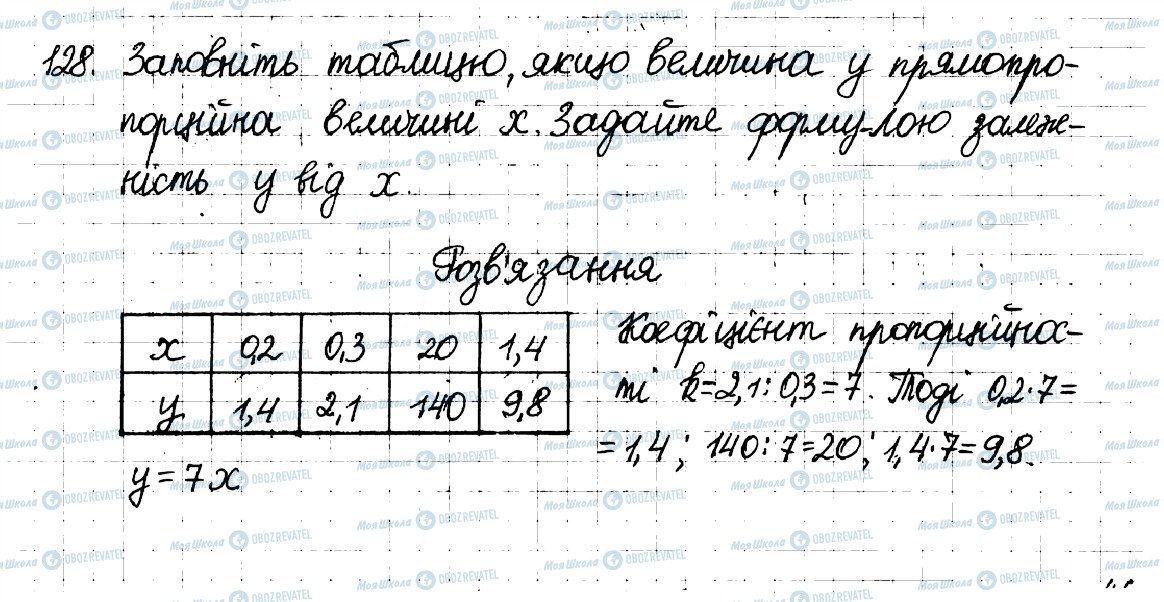 128. Заповніть таблицю, якщо величина y прямопро-
порційна величині x. Задайте формулою залеж-
ність y від x.
Розв'язання
x 0,2 0,3 20 1,4
y 1,4 2,1 140 9,8
y=7x
Коефіцієнт пропорційнос-
ті k=2,1:0,3=7. Тоді 0,2·7=
=1,4; 140:7=20; 1,4·7=9,8.
МояШкола OBOZREVATEL